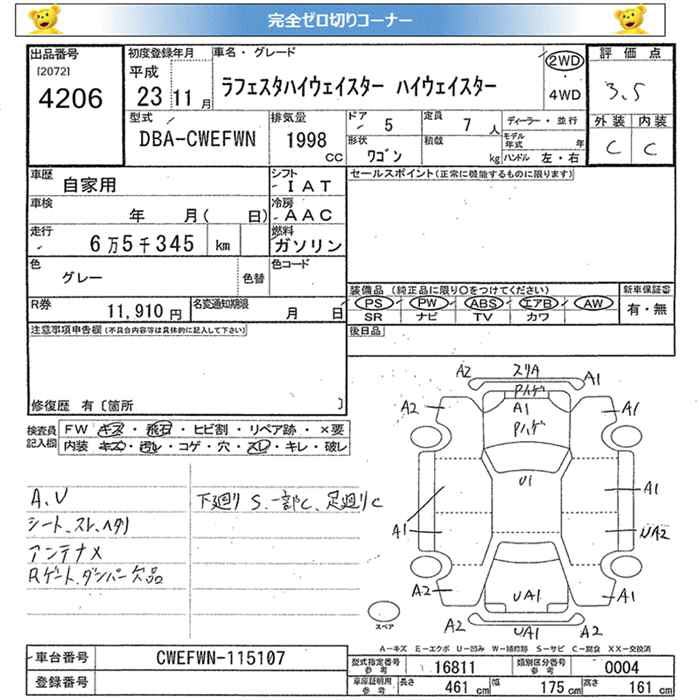 完全ゼロ切りコーナー
出品番号
[2072]
4206
初度登録年月
平成
23 11 月
車名・グレード
ラフェスタハイウェイスター ハイウェイスター
2WD
4WD
評価点
3.5
外装 内装
C C
型式
DBA-CWEFWN
排気量
1998
CC
ドア
5
定員
7 人
形状
ワゴン
積載
kg
ディーラー・並行
モデル年式 年
ハンドル 左・右
車歴
自家用
シフト
IAT
車検
年 月( 日)
冷房
AAC
走行
6万5千345 km
燃料
ガソリン
色
グレー
色替
色コード
R券
11,910 円
名変通知期限
月 日
セールスポイント(正常に機能するものに限ります)
装備品 (純正品に限り○をつけてください)
PS PW ABS エアB AW
SR ナビ TV カワ
新車保証書
有・無
後日品
注意事項申告欄(不具合内容等は具体的に記入して下さい)
修復歴 有〔箇所 〕
検査員記入欄
FW キズ・飛石・ヒビ割・リペア跡・×要
内装 キズ・汚れ・コゲ・穴・スレ・キレ・破レ
A.V
シート、スレ、ヘタリ
アンテナX
Rゲート、ダンパー欠品
下廻り S、一部C、足廻りC
A2 スリA A1
Pハゲ
A2 A1 A1
Pハゲ
U1
A1 A1
UA2
A2 UA1 A2
A2 UA1 A2
スペア
A-キズ E-エクボ U-凹み W-補修跡 S-サビ C-腐食 XX-交換済
車台番号
CWEFWN-115107
登録番号
型式指定番号
参考
16811
類別区分番号
参考
0004
車庫証明用
参考
長さ 461 cm 幅 175 cm 高さ 161 cm